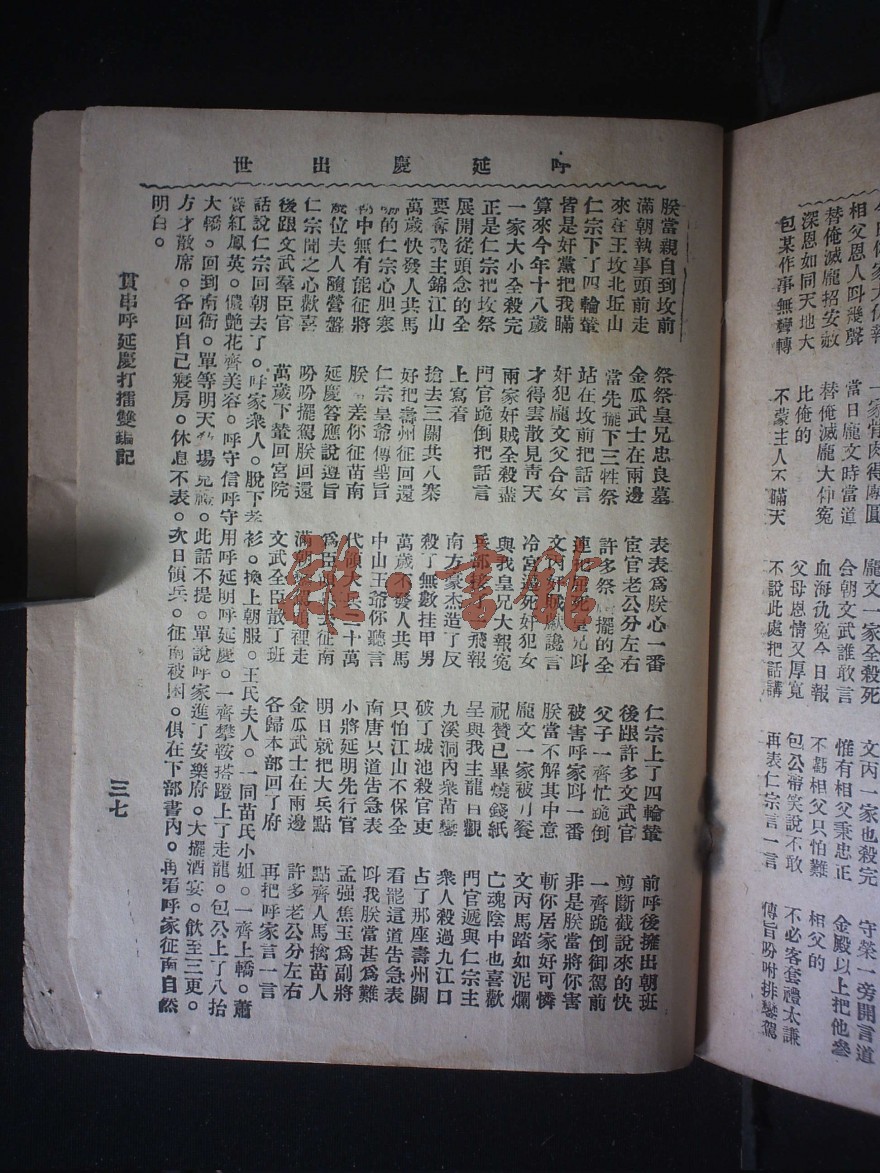 你家大仇報 一家骨肉得團圓 龐文一家全殺死 文丙一家也殺完 守榮一旁開言道
相父恩人叫幾聲 當日龐文時當道 合朝文武誰敢言 惟有相父秉忠正 金殿以上把他參
替俺滅龐招安敵 替俺滅龐大仲冤 血海仇冤今日報 不虧相父只怕難 相父的
深恩如同天地大 比俺的 父母恩情又厚寬 包公帶笑說不敢 不必客套禮太謙
包某作事無彎轉 不蒙主人不瞞天 不說此處把話講 再表仁宗言一言 傳旨吩咐排鑾駕
呼延慶出世
朕當親自到坟前 祭祭皇兄忠良墓 表表爲朕心一番 仁宗上了四輪輦 前呼後擁出朝班
滿朝執事頭前走 金瓜武士在兩邊 宦官老公分左右 後跟許多文武官 剪斷截說來的快
來在王坟北坵山 當先擺下三牲祭 許多祭擺的全 父子一齊忙跪倒 一齊跪倒御駕前
仁宗下了四輪輦 站在坟前把話言 連把屈死皇兄叫 被害呼家叫一番 非是朕當將你害
皆是奸黨把我瞞 奸犯龐文父合女 文丙奸賊獻讒言 朕當不解其中意 斬你居家好可憐
算來今年十八歲 才得雲散見青天 冷宮逼死奸犯女 龐文一家被刀餐 文丙馬踏如泥爛
一家大小全殺完 兩家奸賊全殺盡 與我皇兄大報冤 祝贊已畢燒錢紙 亡魂陰中也喜歡
正是仁宗把坟祭 門官跪倒把話言 兵部接之飛報 呈與我主龍目觀 門官遞與仁宗主
展開從頭念的全 上寫着 南方豪杰造了反 九溪洞內衆苗蠻 衆人殺過九江口
要奪我主錦江山 搶去三關共八寨 殺了無數挂甲男 破了城池殺官吏 占了那座壽州關
萬歲快發人共馬 好把壽州征回還 萬歲不發人共馬 只怕江山不保全 看罷這道告急表
的仁宗心胆寒 仁宗皇爺傳聖旨 中山王爺你聽言 南唐只道告急表 叫我朕當甚爲難
中無有能征將 朕差你征苗南 代領大兵十萬 小將延明先行官 孟强焦玉爲副將
位夫人隨營盤 延慶答應說遵旨 爲臣領去征南 明日就把大兵點 點齊人馬擒苗人
仁宗聞之心歡喜 吩吩擺駕朕回還 滿朝裡走 金瓜武士在兩邊 許多老公分左右
後跟文武羣臣官 萬歲下輦回宮院 文武全臣散了班 各歸本部回了府 再把呼家言一言
話說仁宗回朝去了。呼家衆人。脫下孝衫。換上朝服。王氏夫人。一同苗氏小姐。一齊上轎。蕭
賽紅鳳英。儂艷花齊美容。呼守信呼守用呼延明呼延慶。一齊攀鞍搭蹬上了走龍。包公上了八抬
大轎。回到南衙。單等明天場見廠。此話不提。單說呼家進了安樂府。大擺酒宴。飲至三更。
方才散席。各回自己寢房。休息不表。次日領兵。征南被困。俱在下部書內。再看呼家征南自然
明白。
貫串呼延慶打擂雙鞭記
三七